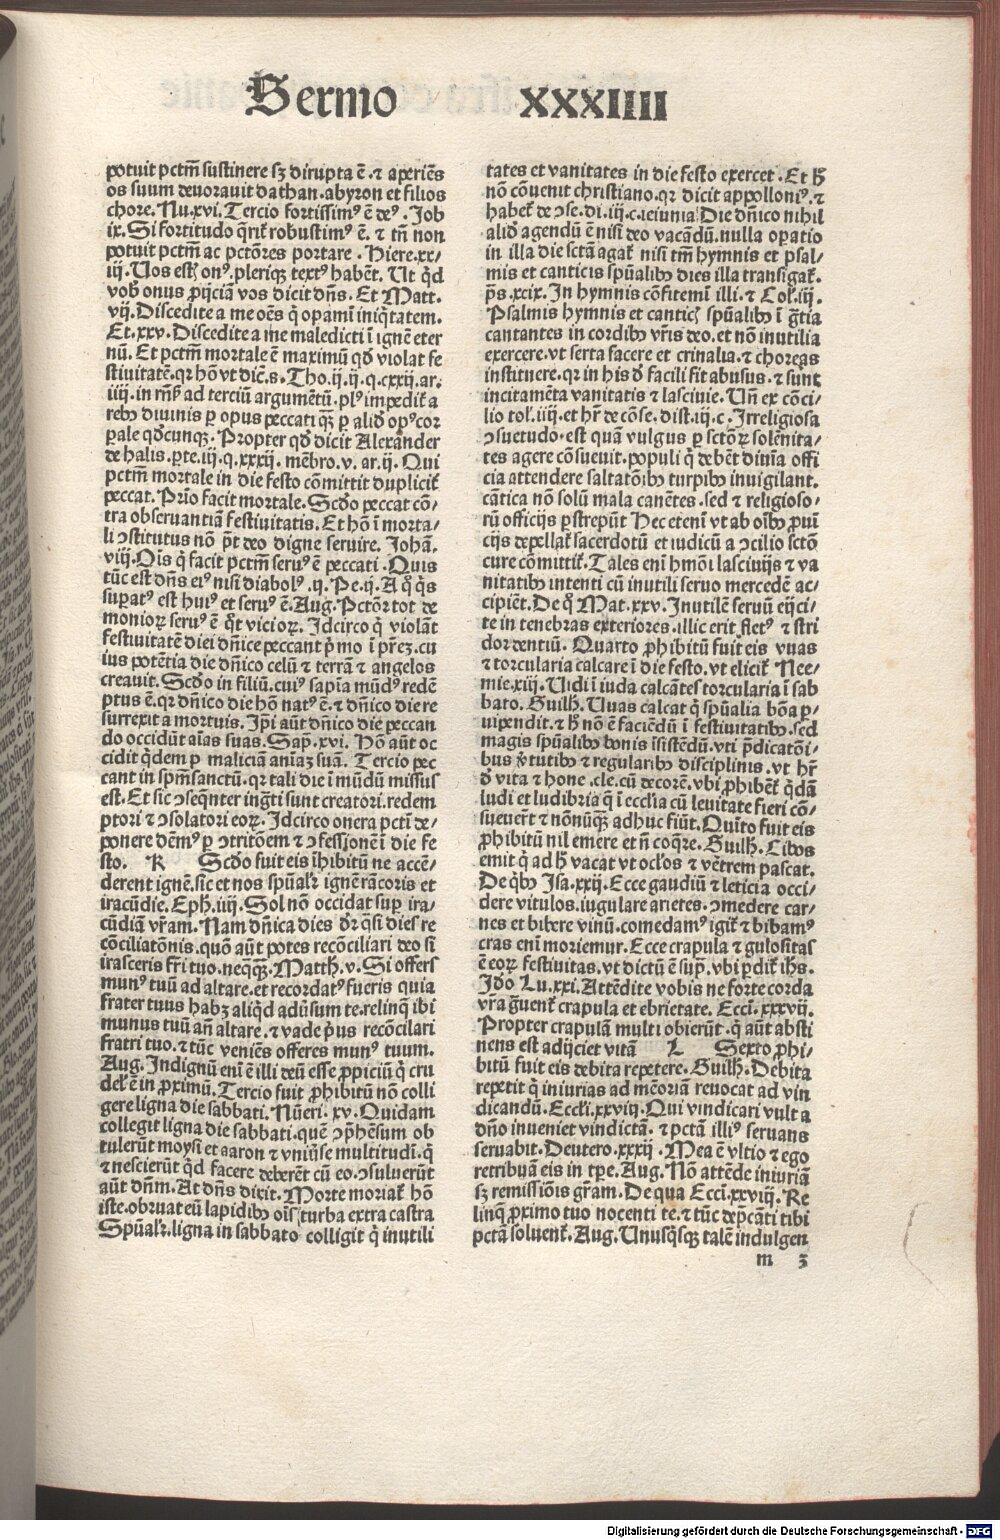 Sermo XXXIIII
potuit pctm̄ sustinere sꝫ dirupta ē. ⁊ aperiēs
os suum devoravit dathan. abyron et filios
chore. Nu. xvi. Tercio fortissimꝰ ē deꝰ. Job
ix. Si fortitudo q̄rit̄ robustimꝰ ē. ⁊ tn̄ non
potuit pctm̄ ac pctōres portare. Hiere. xx/
iij. Uos est̄ onꝰ. pleriqꝫ textꝰ habēt. Ut q̇d
vob̄ onus ꝓijciā vos dicit dn̄s. Et Matt.
vij. Discedite a me oēs q̇ opamī iniq̇tatem.
Et. xxv. Discedite a me maledicti ī ignē eter
nū. Et pctm̄ mortale ē maximū qd̄ violat fe
stivitatē. qr hō vt dic̄. s. Tho. ij. ij. q. cxxij. ar.
iiij. in rn̄s̄ ad terciū argumētū. plꝰ impedit̄ a
rebꝰ divinis ꝑ opus peccati qꝫ ꝑ aliḋ opꝰ cor
ꝑale qḋcunqꝫ. Propter qḋ dicit Alexāder
de halis. ꝑte. iij. q. xxxij. mēbro. v. ar. ij. Qui
pctm̄ mortale in die festo cōmittit duplicit̄
peccat. Prīo facit mortale. Scḋo peccat cō/
tra observantiā festivitatis. Et hō ī morta/
li ꝯstitutus nō pt̄ deo digne servire. Johā.
viij. Oīs q̇ facit pctm̄ servꝰ ē peccati. Quis
tūc est dn̄s eiꝰ nisi diabolꝰ. ij. Pe. ij. A q̊ q̇s
supatꝰ est huiꝰ et servꝰ ē. Aug. Pctōr tot de
monioꝝ servꝰ ē q̊t vicioꝝ. Jdcirco q̇ violāt
festivitatē diei dn̄ice peccant p̄mo ī pr̄eꝫ. cu
ius potētia die dn̄ico celū ⁊ terrā ⁊ angelos
creavit. Scḋo in filiū. cuiꝰ sapīa mūdꝰ redē
ptus ē. qr dn̄ico die hō natꝰ ē. ⁊ dn̄ico die re
surrexit a mortuis. Jp̄i aūt dn̄ico die peccan
do occidūt aīas suas. Sap̄. xvi. Hō aūt oc
cidit q̇dem ꝑ maliciā aniaꝫ suā. Tercio pec
cant in spm̄ sanctū. qr tali die ī mūdū missus
est. Et sic ꝯseq̄nter ingr̄ti sunt creatori. redem
ptori ⁊ ꝯsolatori eoꝝ. Jdcirco onera pctī de/
ponere dēmꝰ ꝑ ꝯtritōem ⁊ ꝯfessionē ī die fe
sto. K Scḋo fuit eis īhibitū ne accē/
derent ignē. sic et nos spūalr̄ ignē rācoris et
iracūdie. Eph̄. iiij. Sol nō occidat suꝑ ira/
cūdiā vr̄am. Nam dn̄ica dies dr̄ q̄si dies re
cōciliatōnis. quō aūt potes recōciliari deo si
irasceris fr̄i tuo. neqꝫqꝫ. Matth̄. v. Si offers
munꝰ tuū ad altare. et recordatꝰ fueris quia
frater tuus habꝫ aliq̇d adūsum te. relinq̄ ibi
munus tuū an̄ altare. ⁊ vade p̄us recōciliari
fratri tuo. ⁊ tūc veniēs offeres munꝰ tuum.
Aug. Jndignū enī ē illi deū esse ꝓpiciū q̇ cru
del̄ ē in ꝓximū. Tercio fuit ꝓhibitū nō colli
gere ligna die sabbati. Nūeri. xv. Quidam
collegit ligna die sabbati. quē ꝯp̄hēsum ob
tulerūt moysi et aaron ⁊ vniv̄se multitudī. q̇
⁊ nescierūt q̇d facere deberēt cū eo. ꝯsuluerūt
aūt dn̄m. At dn̄s dixit. Morte moriat̄ hō
iste. obruat eū lapidibꝰ oīs turba extra castra
Spūalr̄. ligna in sabbato colligit q̇ inutili
tates et vanitates in die festo exercet. Et h̄
nō cōvenit christiano. qr dicit appolloniꝰ. ⁊
habet̄ de ꝯse. di. iij. c. ieiunia Die dn̄ico nihil
aliḋ agendū ē nisi deo vacādū. nulla opatio
in illa die sctā agat̄ nisi tm̄ hymnis et psal/
mis et canticis spūalibꝰ dies illa transigat̄.
p̄s. xcix. Jn hymnis cōfitemī illi. ⁊ Col̄. iij.
Psalmis hymnis et cantic̄ spūalibꝰ ī gr̄tia
cantantes in cordibꝰ vr̄is deo. et nō inutilia
exercere. vt serta facere et crinalia. ⁊ choreas
instituere. qr in his ḋ facili fit abusus. ⁊ sunt
incitamēta vanitatis ⁊ lascivie. Un̄ ex cōci/
lio tol̄. iiij. et hr̄ de cōse. dist. iij. c. Jrreligiosa
ꝯsuetudo. est quā vulgus ꝑ sctōꝝ solēnita/
tes agere cōsuevit. populi q̇ debēt divīa offi
cia attendere saltatōibꝰ turpibꝰ invigilant.
cātica nō solū mala canētes. sed ⁊ religioso/
rū officijs ꝑstrepūt Hec etenī vt ab oībꝰ ꝓvī
cijs depellat̄ sacerdotū et iudicū a ꝯcilio sctō
cure cōmittit̄. Tales enī hmōi lascivijs ⁊ va
nitatibꝰ intenti cū inutili servo mercedē ac/
cipiēt. De q̊ Mat. xxv. Jnutilē servū eijci/
te in tenebras exteriores. illic erit fletꝰ ⁊ stri
dor dentiū. Quarto ꝓhibitū fuit eis vvas
⁊ torcularia calcare ī die festo. vt elicit̄ Nee/
mie. xiij. Uidi ī iuda calcātes torcularia ī sab
bato. Guilh̄. Uvas calcat q̇ spūalia bōa ꝑ/
vipendit. ⁊ h̄ nō ē faciēdū ī festivitatibꝰ. sed
magis spūalibꝰ bonis īsistēdū. vti p̄dicatōi/
bus v̄tutibꝰ ⁊ regularibꝰ disciplinis. vt hr̄
ḋ vita ⁊ hone. cle. cū decorē. vbi ꝓhibēt̄ q̇dā
ludi et ludibria q̄ ī ecclīa cū levitate fieri cō/
sueverūt ⁊ nōnūqꝫ adhuc fiūt. Quīto fuit eis
ꝓhibitū nil emere et n̄ coq̄re. Guilh̄. Cibos
emit q̇ ad h̄ vacat vt oclōs ⁊ vētrem pascat.
De q̇bꝰ Jsa. xxij. Ecce gaudiū ⁊ leticia occi/
dere vitulos. iugulare arietes. ꝯmedere car/
nes et bibere vinū. comedamꝰ igit̄ ⁊ bibamꝰ
cras enī moriemur. Ecce crapula ⁊ gulositas
ē eoꝝ festivitas. vt dictū ē supͣ. vbi pͥdit̄ ihs̄.
Jḋo Lu. xxi. Attēdite vobis ne forte corda
vr̄a gͣvent̄ crapula et ebrietate. Eccī. xxxvij.
Propter crapulā multi obierūt. q̇ aūt absti
nens est adijciet vitā L Sexto ꝓhi/
bitū fuit eis debita repetere. Guilh̄. Debita
repetit q̇ iniurias ad mēoriā revocat ad vin
dicandū. Eccli. xxviij. Qui vindicari vult a
dn̄o inveniet vindictā. ⁊ pctā illiꝰ servans
servabit. Deutero. xxxij. Mea ē vltio ⁊ ego
retribuā eis in tpe. Aug. Nō attēde iniuriā
sꝫ remissiōis gr̄am. De qua Eccī. xxviij. Re
linq̄ ꝓximo tuo nocenti te. ⁊ tūc dep̄cāti tibi
pctā solvent̄. Aug. Unusq̇sqꝫ talē indulgen
m 3
Digitalisierung gefördert durch die Deutsche Forschungsgemeinschaft - DFG